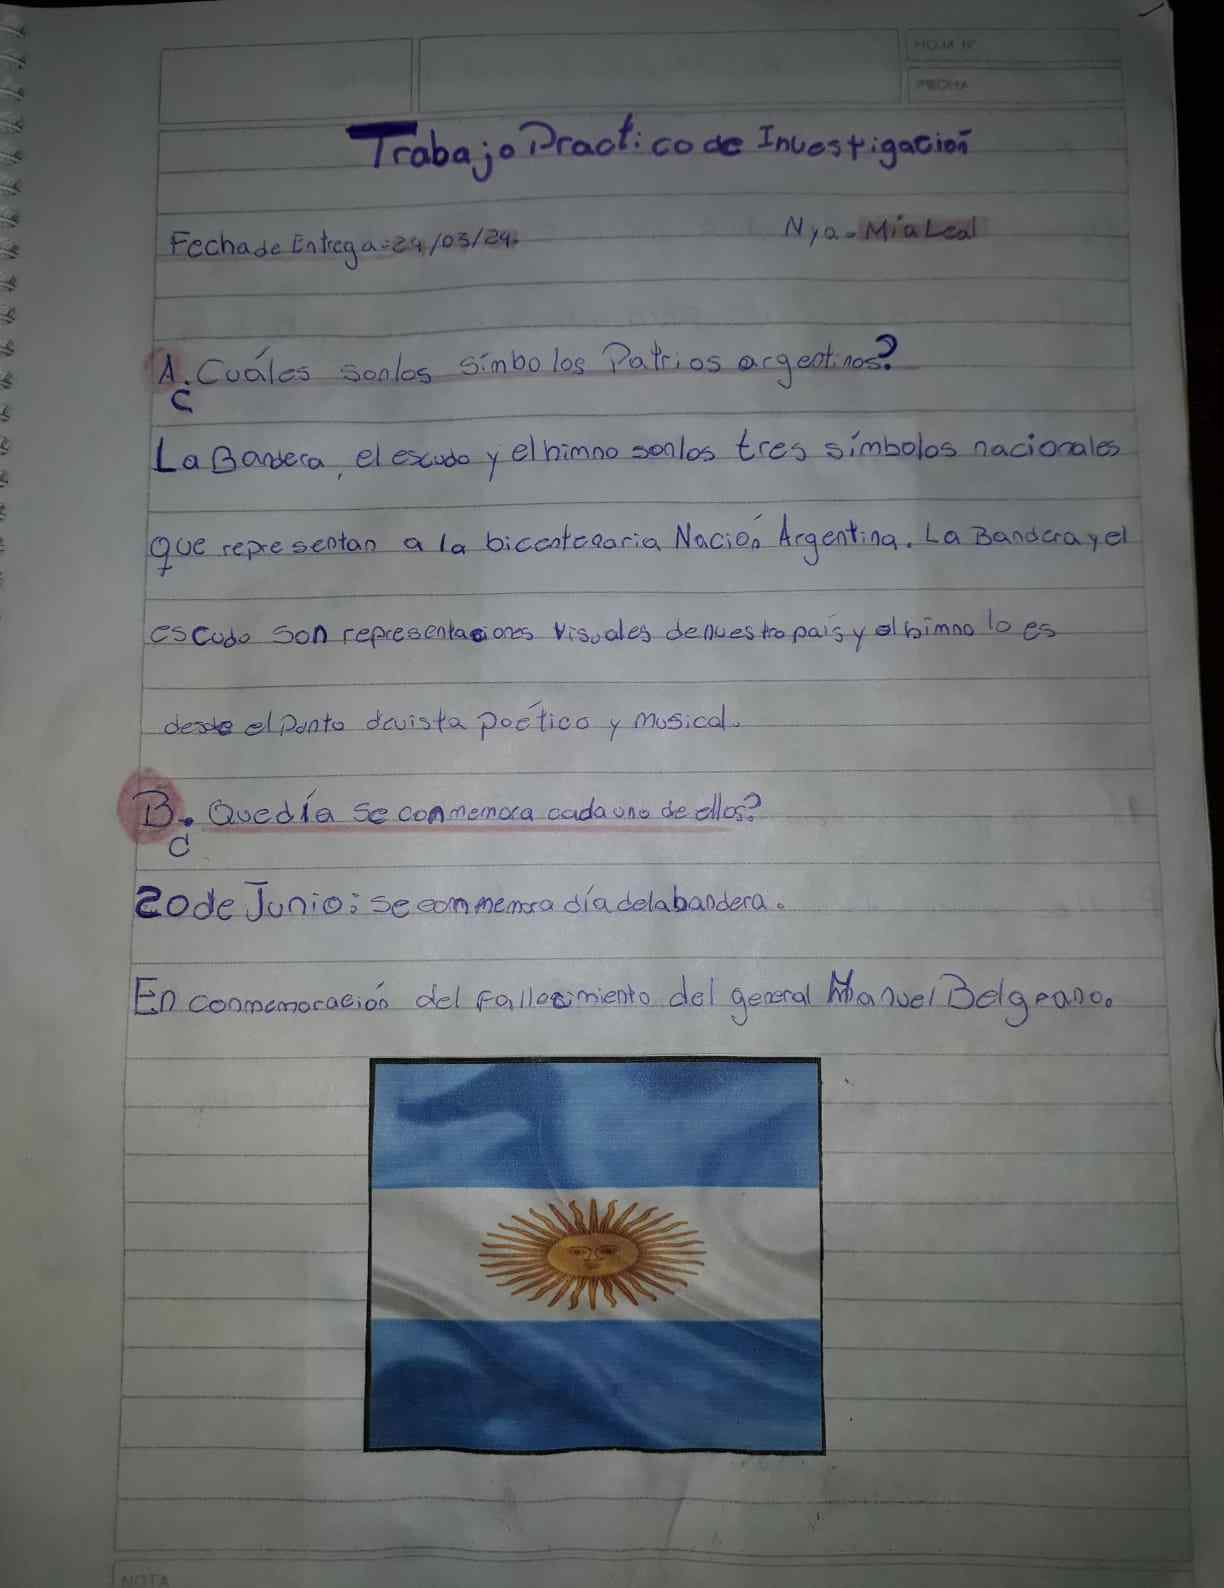 HOJA N°
FECHA
Trabajo Practico de Investigación
Fecha de Entrega: 24/03/24.
N y a. Mía Leal
A. Cuáles son los símbolos Patrios argentinos?
C
La Bandera, el escudo y el himno son los tres símbolos nacionales
que representan a la bicentenaria Nación Argentina. La Bandera y el
escudo son representaciones visuales de nuestro país y el himno lo es
desde el punto de vista poético y musical.
B. Que día se conmemora cada uno de ellos?
C
20 de Junio: se conmemora día de la bandera.
En conmemoración del fallecimiento del general Manuel Belgrano.
NOTA